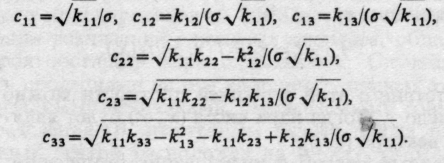 c₁₁=√k₁₁/σ, c₁₂=k₁₂/(σ√k₁₁), c₁₃=k₁₃/(σ√k₁₁),
c₂₂=√(k₁₁k₂₂−k₁₂²)/(σ√k₁₁),
c₂₃=√(k₁₁k₂₂−k₁₂k₁₃)/(σ√k₁₁),
c₃₃=√(k₁₁k₃₃−k₁₃²−k₁₁k₂₃+k₁₂k₁₃)/(σ√k₁₁).